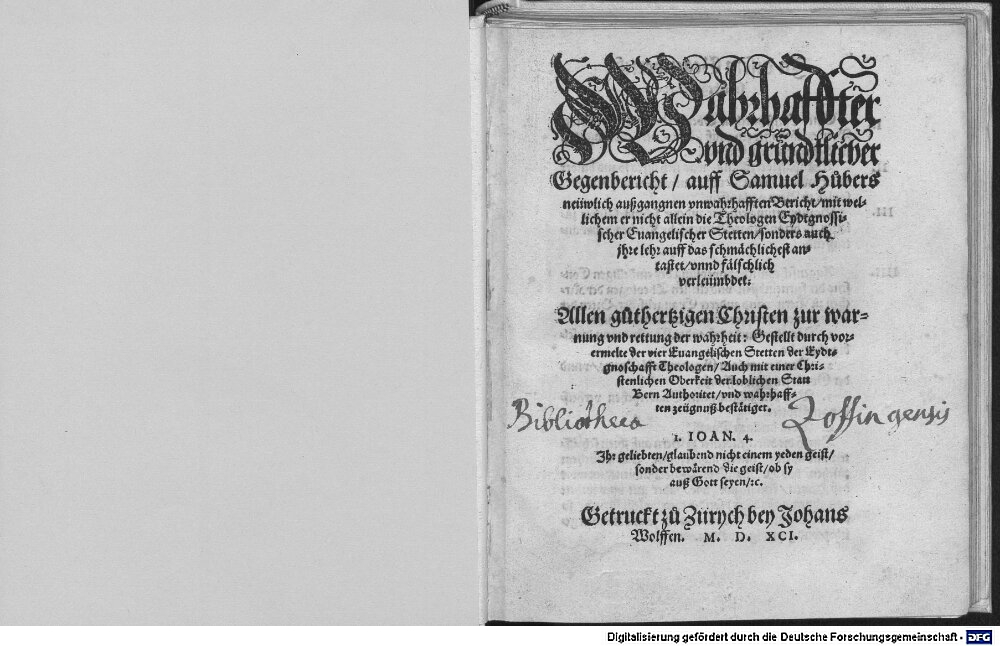 Wahrhaffter
vnd gründtlicher
Gegenbericht / auff Samuel Hůbers
neüwlich außgangnen vnwahrhafften Bericht / mit wel-
lichem er nicht allein die Theologen Eydtgnossi-
scher Euangelischer Stetten / sonders auch
jhre lehr auff das schmächlichest an-
tastet / vnnd fälschlich
verleümbdet:
Allen gůthertzigen Christen zur war-
nung vnd rettung der wahrheit: Gestellt durch vor-
ermelte der vier Euangelischen Stetten der Eydt-
gnoschafft Theologen / Auch mit einer Chri-
stenlichen Oberkeit der loblichen Statt
Bern Authoritet / vnd wahrhaff-
ten zeügnuß bestätiget.
Bibliotheca Zoffingensis
1. IOAN. 4.
Ihr geliebten / glaubend nicht einem yeden geist /
sonder bewärend die geist / ob sy
auß Gott seyen / ꝛc.
Getruckt zů Zürych bey Johans
Wolffen. M. D. XCI.
Digitalisierung gefördert durch die Deutsche Forschungsgemeinschaft - DFG